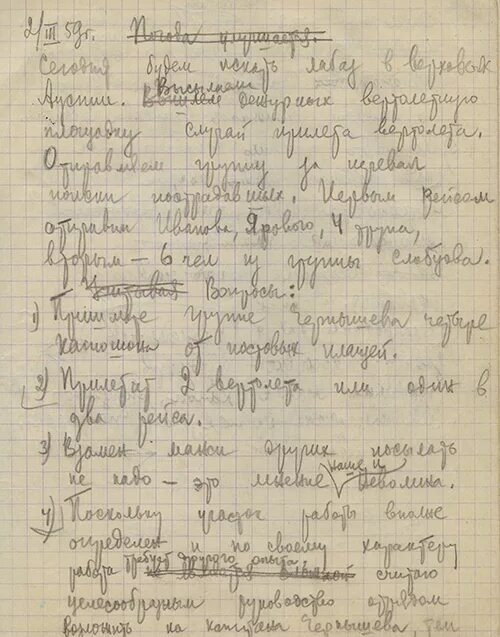 2/III 59г. Погода улучшается.
Сегодня будем искать лабаз в верховьях
Высылаем
Ауспии. дежурных вертолетную
площадку случай прилета вертолета.
Отправляем группу за перевал
поиски пострадавших. Первым рейсом
отправим Иванова, Ярового, 4 трупа,
вторым – 6 чел из группы Слобцова.
Учитывая Вопросы:
1) Пришлите группе Чернышева четыре
капюшона от постовых плащей.
2) Прилетит 2 вертолета или один в
два рейса.
3) Взамен манси других посылать
наше и
не надо – это мнение Неволина.
4) Поскольку участок работы вполне
определен и по своему характеру
требует другого опыта
работа считаю
целесообразным руководство отрядом
возложить на капитана Чернышева тем